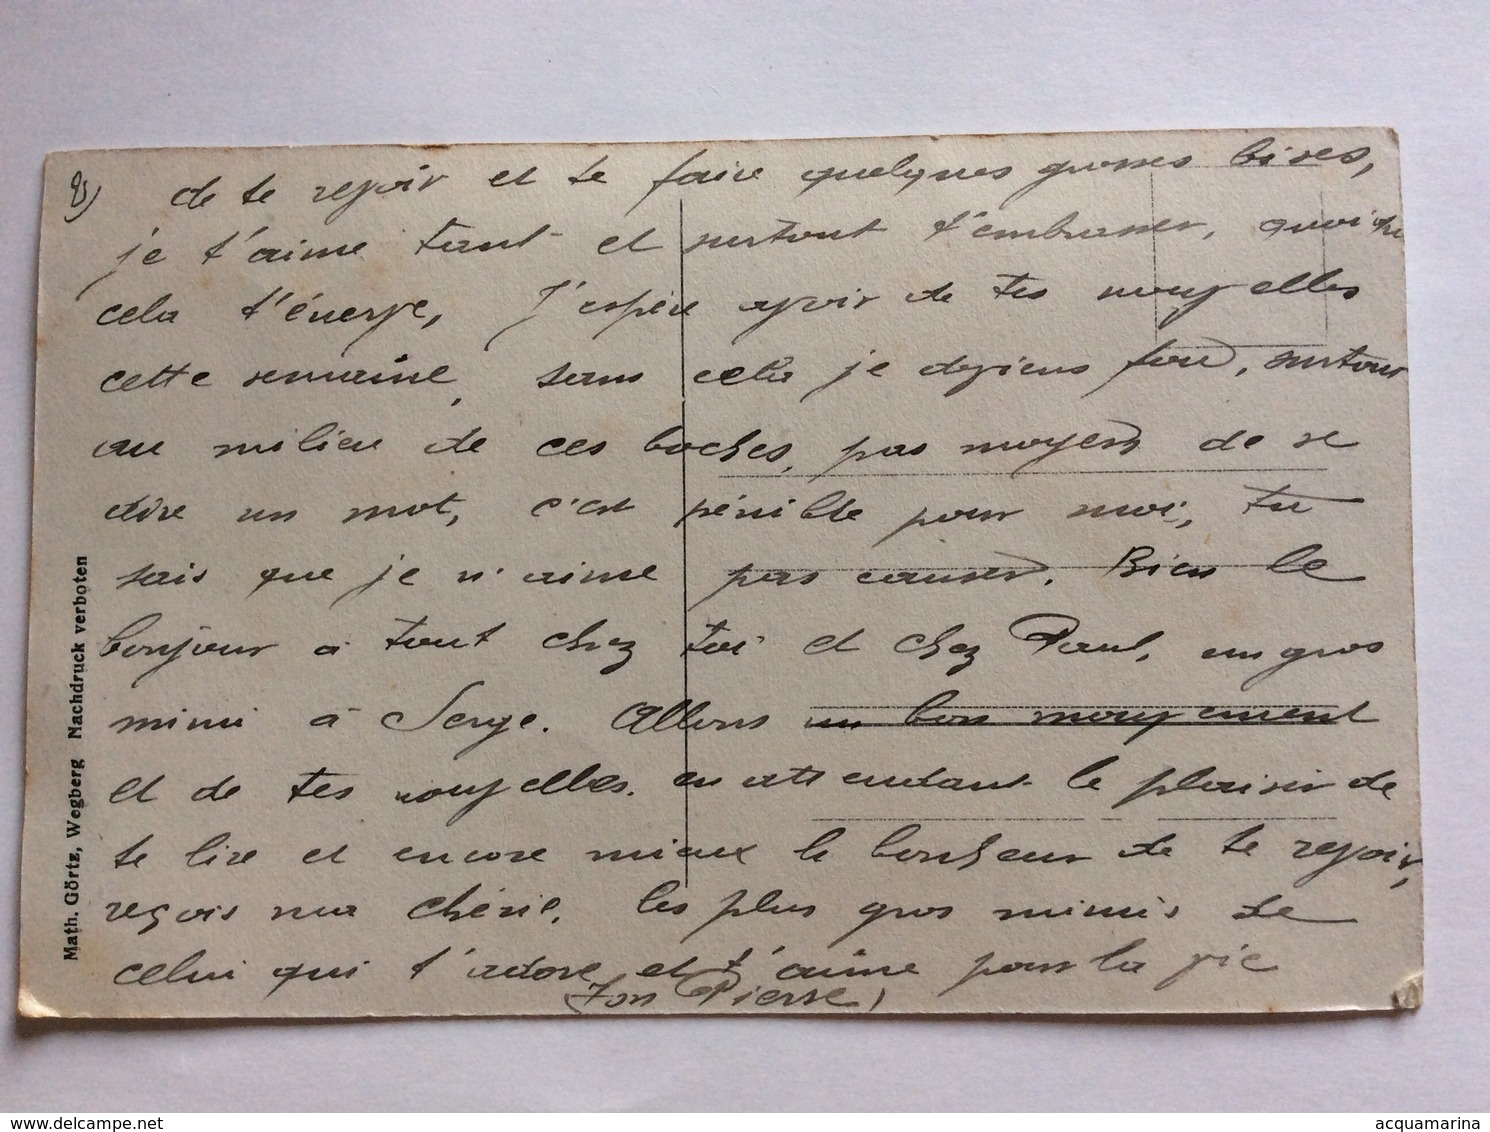 2) de te revoir et te faire quelques grosses bises,
je t'aime tant et surtout t'embrasser, quoique
cela t'énerve, J'espère avoir de tes nouvelles
cette semaine, sans cela je deviens fou, surtout
au milieu de ces boches, pas moyens de se
dire un mot, c'est pénible pour moi, tu
sais que je n'aime pas causer. Bien le
bonjour à tout chez toi et chez Paul, un gros
mimi à Serge. Allons un bon mouvement
et de tes nouvelles. en attendant le plaisir de
te lire et encore mieux le bonheur de te revoir,
reçois ma chérie, les plus gros mimis de
celui qui t'adore et t'aime pour la vie
(Ton Pierre)
Math. Görtz, Wegberg Nachdruck verboten
acquamarina